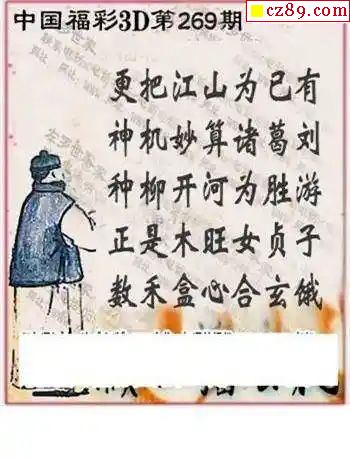 中国福彩3D第269期
cz89.com
更把江山为己有
神机妙算诸葛刘
种柳开河为胜游
正是木旺女贞子
数禾盒心合玄饿